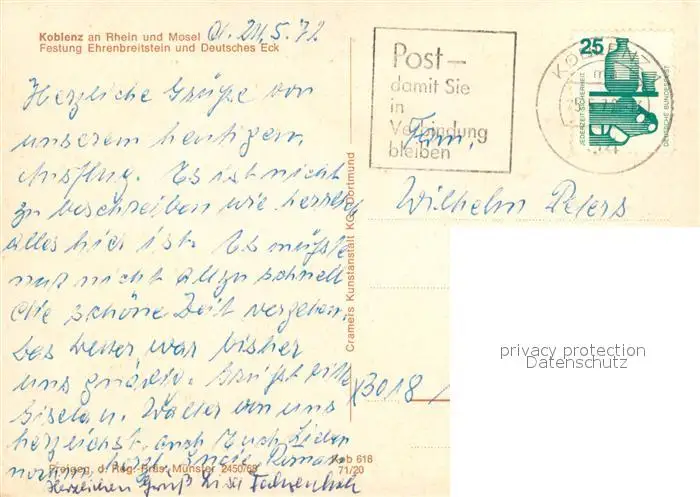 Koblenz an Rhein und Mosel
Festung Ehrenbreitstein und Deutsches Eck
d. 21.5.72
Herzliche Grüße von
unserem heutigen
Ausflug. Es ist nicht
zu beschreiben wie herrlich
alles hier ist. Es müßte
nur nicht allzu schnell
die schöne Zeit vergehen.
Das Wetter war bisher
uns gnädig. Grüßt bitte
Gisela u. Walter von uns
herzlichst auch Euch Lieben
Herzlichen Gruß
Freigeg. d. Reg. Präs. Münster 2450/68
Kob 618
71/20
Cramers Kunstanstalt KG, Dortmund
Post-
damit Sie
in
Verbindung
bleiben
KOBLENZ
25
JEDERZEIT SICHERHEIT
DEUTSCHE BUNDESPOST
Fam.
Wilhelm Peters
3018
privacy protection
Datenschutz